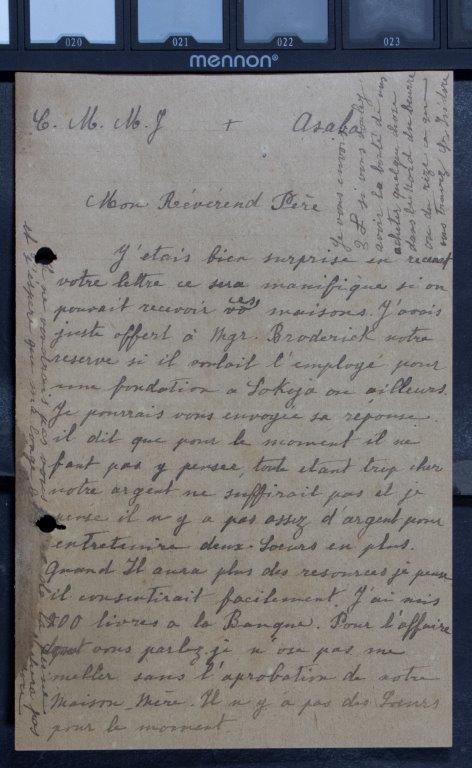 020 021 022 023
mennon®
C. M. M. J + Asaba
Mon Révérend Père
J'étais bien surprise en recevant
votre lettre ce sera manifique si on
pouvait recevoir ces maisons. J'avais
juste offert à Mgr. Broderick notre
reserve si il voulait l'employé pour
une fondation a Lokoja ou ailleurs.
Je pourrais vous envoyée sa réponse.
il dit que pour le moment il ne
faut pas y pensee, toute etant trop cher
notre argent ne suffirait pas et je
pense il n y a pas assez d'argent pour
entretenire deux Soeurs en plus.
Quand Il aura plus des resources je pense
il consentirait facilement. J'ai mis
300 livres a la Banque. Pour l'affaire
dont vous parlez je n'ose pas me
meller sans l'aprobation de notre
Maison Mère. Il n y á pas des Soeurs
pour le moment.
Je vous envois
2 L si vous voulez
avoir la bonté de nous
acheter quelque chose
dans le Hold du beurre
ou du rize ce que
vous trouvez
et j'espère que